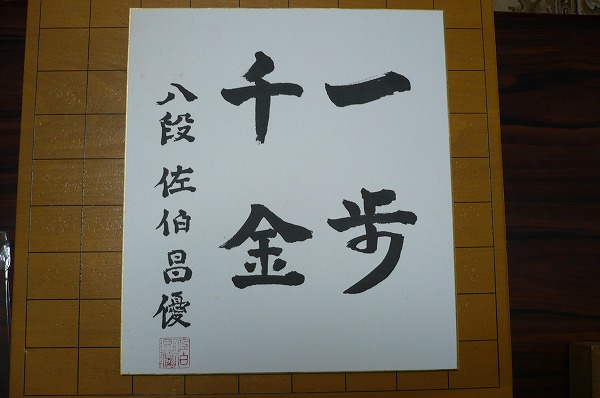 一歩
千金
八段 佐伯昌優